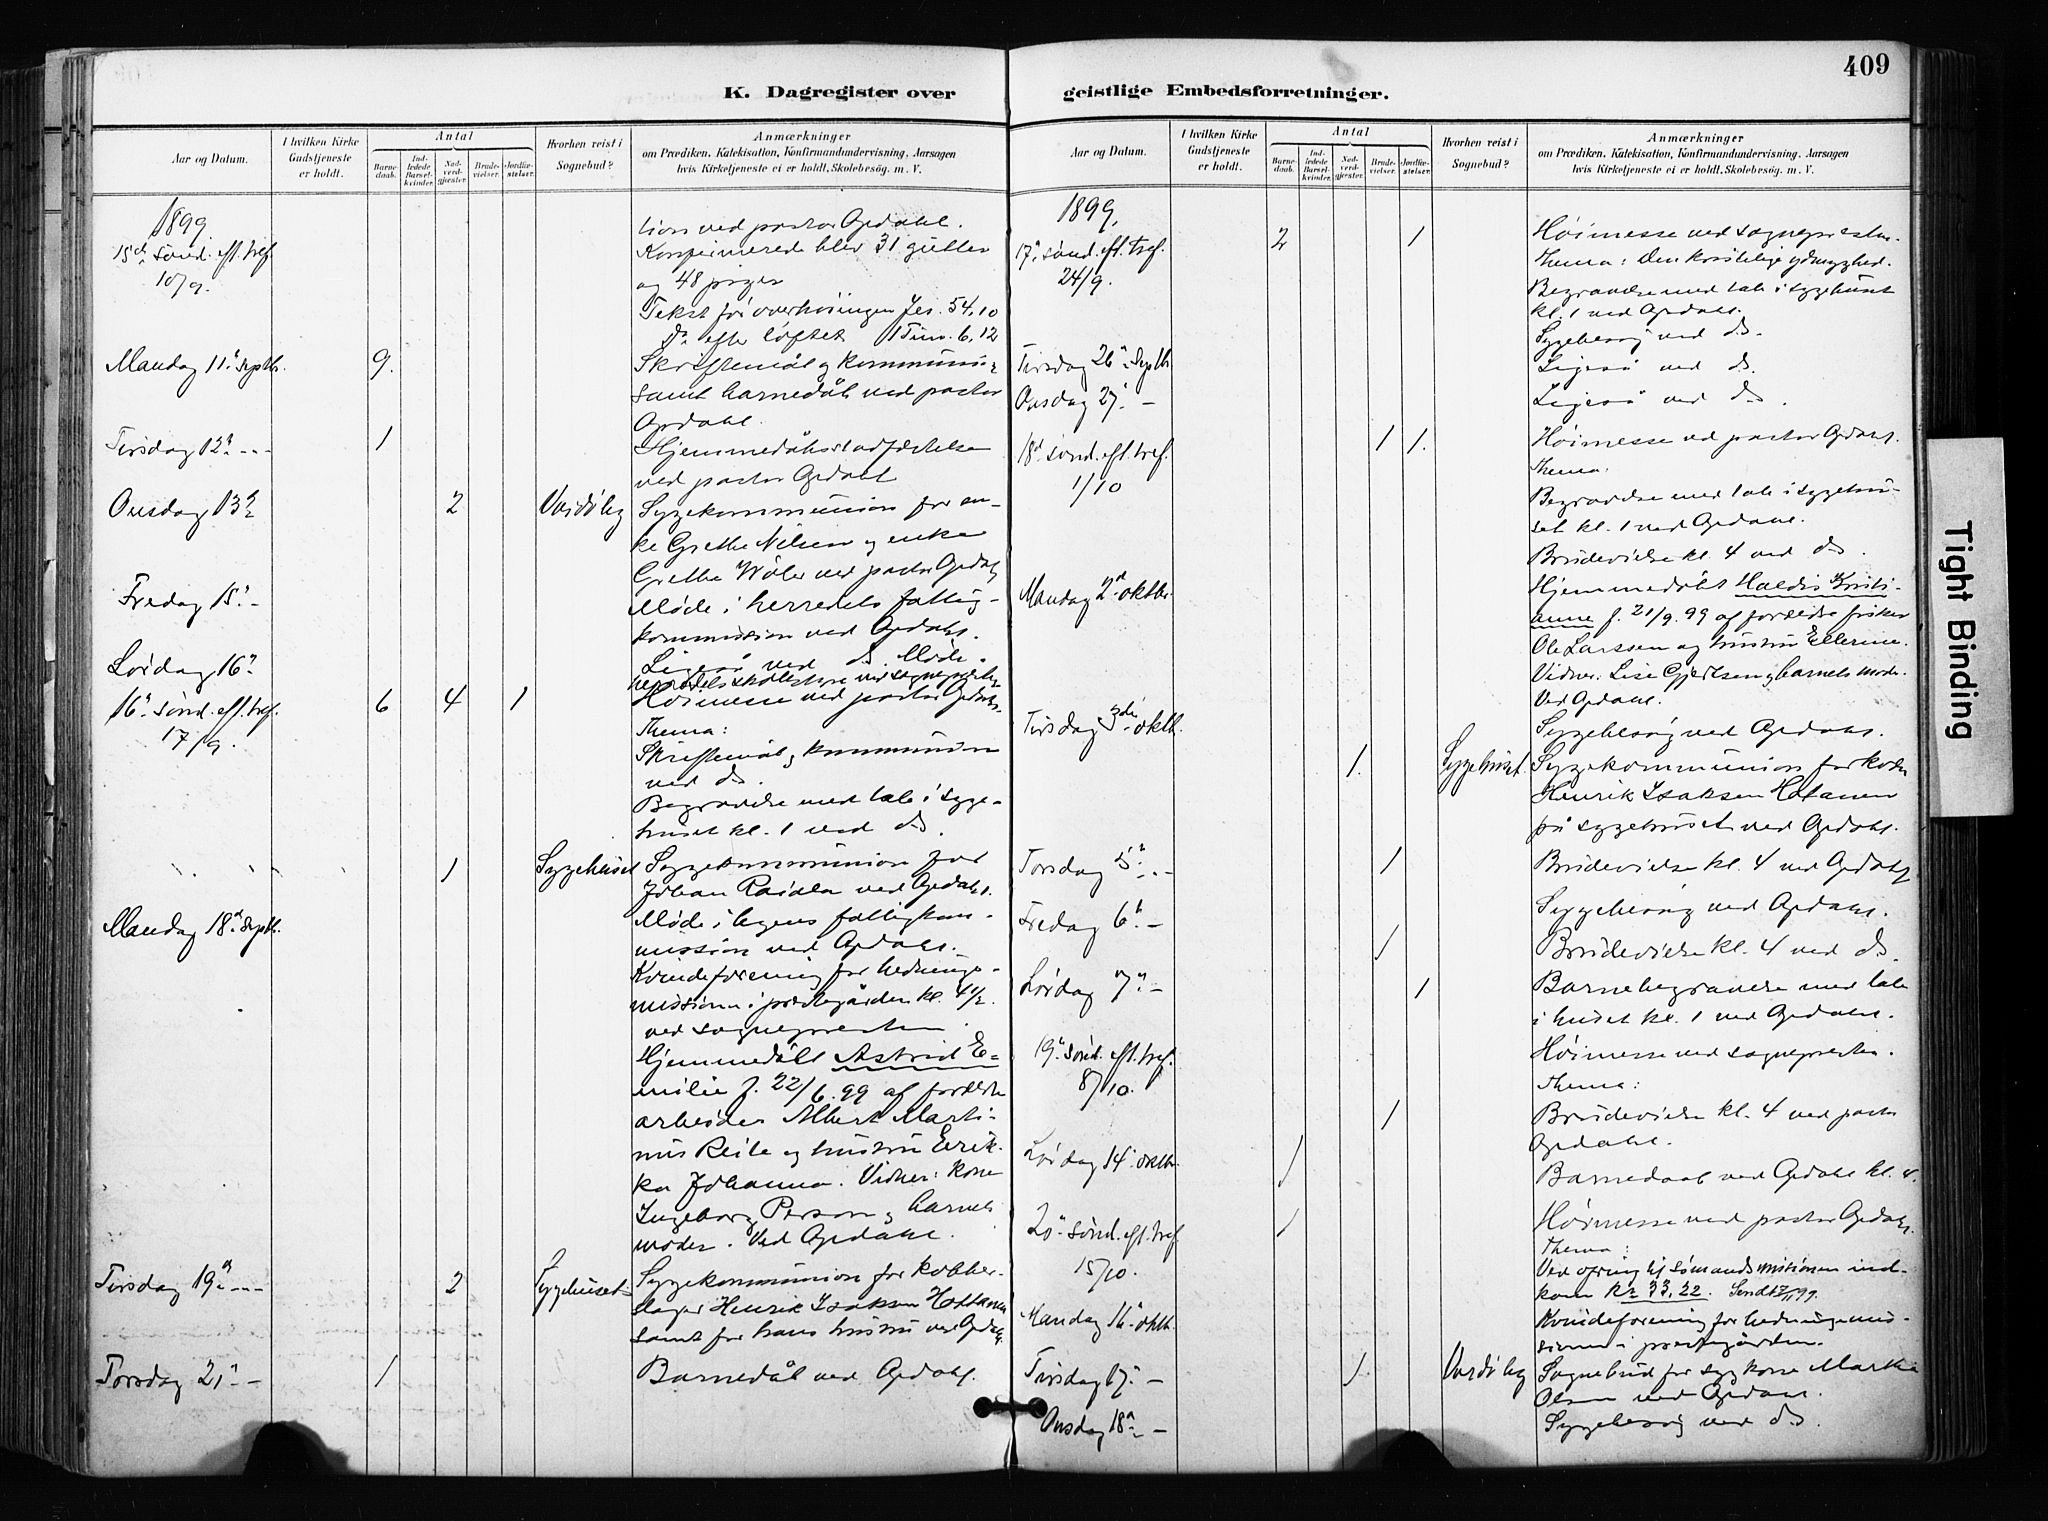 409
K. Dagregister over
geistlige Embedsforretninger.
Aar og Datum.
I hvilken Kirke Gudstjeneste er holdt.
Antal
Barne-daab.
Ind-ledede Barsel-kvinder.
Nad-verd-gjester.
Brude-vielser.
Jordfæ-stelser.
Hvorhen reist i Sognebud?
Anmærkninger
om Prædiken, Katekisation, Konfirmandundervisning, Aarsagen
hvis Kirketjeneste ei er holdt, Skolebesøg. m. V.
1899
15de sønd. eft. tref.
10/9.
tion ved pastor Opdahl.
Konfirmerede blev 31 gutter
og 48 piger
Tekst før overhøringen Jes. 54,10
do efter løftet 1 Tim. 6,12
Mandag 11te Septbr. 9.
Skriftemål og kommunion
samt barnedåb ved pastor
Opdahl.
Tirsdag 12te - - 1
Hjemmedåbsstadfæstelse
ved pastor Opdahl
Onsdag 13de 2 Vardø by
Sygekommunion for en-
ke Grethe Nilsen og enke
Grethe ved pastor Opdahl
Fredag 15. -
Møde i herredets fattig-
kommission ved Opdahl.
Lørdag 16.
Ligeså ved do. Møde i
herredets skolestyre ved sognepresten
16. sønd. eft. tref. 6 4 1
17/9.
Høimesse ved pastor Opdahl.
Thema:
Skriftemål og kommunion
ved do.
Begravelse med tale i syge-
huset kl. 1 ved do.
1 Sygehuset
Sygekommunion for
Johan ved Opdahl.
Mandag 18. Septbr.
Møde i byens fattigkom-
mission ved Opdahl.
Kvindeforening for hedninge-
missionen i prestegården kl. 4 1/2
ved sognepresten.
Hjemmedåbt Astrid E-
milie f. 22/6.99 af forældre
arbeider Albert Marti-
nus og hustru Erik-
ka Johanna. Vidner: kone
Ingeborg Person og barnets
moder. Ved Opdahl.
Tirsdag 19de - - 2 Sygehuset
Sygekommunion for kobber-
slager Henrik Isaksen
samt for hans hustru ved Opdahl.
Torsdag 21. - 1
Barnedåb ved Opdahl.
Aar og Datum.
I hvilken Kirke Gudstjeneste er holdt.
Antal
Barne-daab.
Ind-ledede Barsel-kvinder.
Nad-verd-gjester.
Brude-vielser.
Jordfæ-stelser.
Hvorhen reist i Sognebud?
Anmærkninger
om Prædiken, Katekisation, Konfirmandundervisning, Aarsagen
hvis Kirketjeneste ei er holdt, Skolebesøg. m. V.
1899.
17. sønd. eft. tref. 2 1
24/9.
Høimesse ved sognepresten.
Thema: Den kristelige ydmyghed.
Begravelse med tale i sygehuset
kl. 1 ved Opdahl.
Sygebesøg ved do.
Tirsdag 26. Septbr.
Ligeså ved do.
Onsdag 27. -
Ligeså ved do.
18. sønd. eft. tref. 1 1.
1/10
Høimesse ved pastor Opdahl.
Thema:
Begravelse med tale i sygehu-
set kl. 1 ved Opdahl.
Brudevielse kl. 4 ved do.
Mandag 2den oktbr.
Hjemmedåbt Haldis Kristi-
anne f. 21/9.99 af forældre fisker
Ole Larssen og hustru Ellerine.
Vidner: Lise Gjertsen og barnets moder.
Ved Opdahl.
Tirsdag 3die oktb.
Sygebesøg ved Opdahl.
1. Sygehuset
Sygekommunion for
Henrik Isaksen
på sygehuset ved Opdahl.
Torsdag 5. - - 1
Brudevielse kl. 4 ved Opdahl
Fredag 6. -
Sygebesøg ved Opdahl.
1
Brudevielse kl. 4 ved do.
Lørdag 7. - 1
Barnebegravelse med tale
i huset kl. 1 ved Opdahl.
19. sønd. eft. tref.
8/10.
Høimesse ved sognepresten.
Thema:
1
Brudevielse kl. 4 ved pastor
Opdahl.
Lørdag 14. oktbr. 1
Barnedaab ved Opdahl kl. 4.
20. sønd. eft. tref 1
15/10.
Høimesse ved pastor Opdahl.
Thema:
Ved ofring til Sømandsmissionen ind-
kom Kr 33,22.
Mandag 16. oktb.
Kvindeforening for hedningemis-
sionen i prestegården.
Tirsdag 17. - 1. Vardø by
Sognebud for syg kone
Olsen ved Opdahl.
Onsdag 18. -
Sygebesøg ved do.
Tight Binding